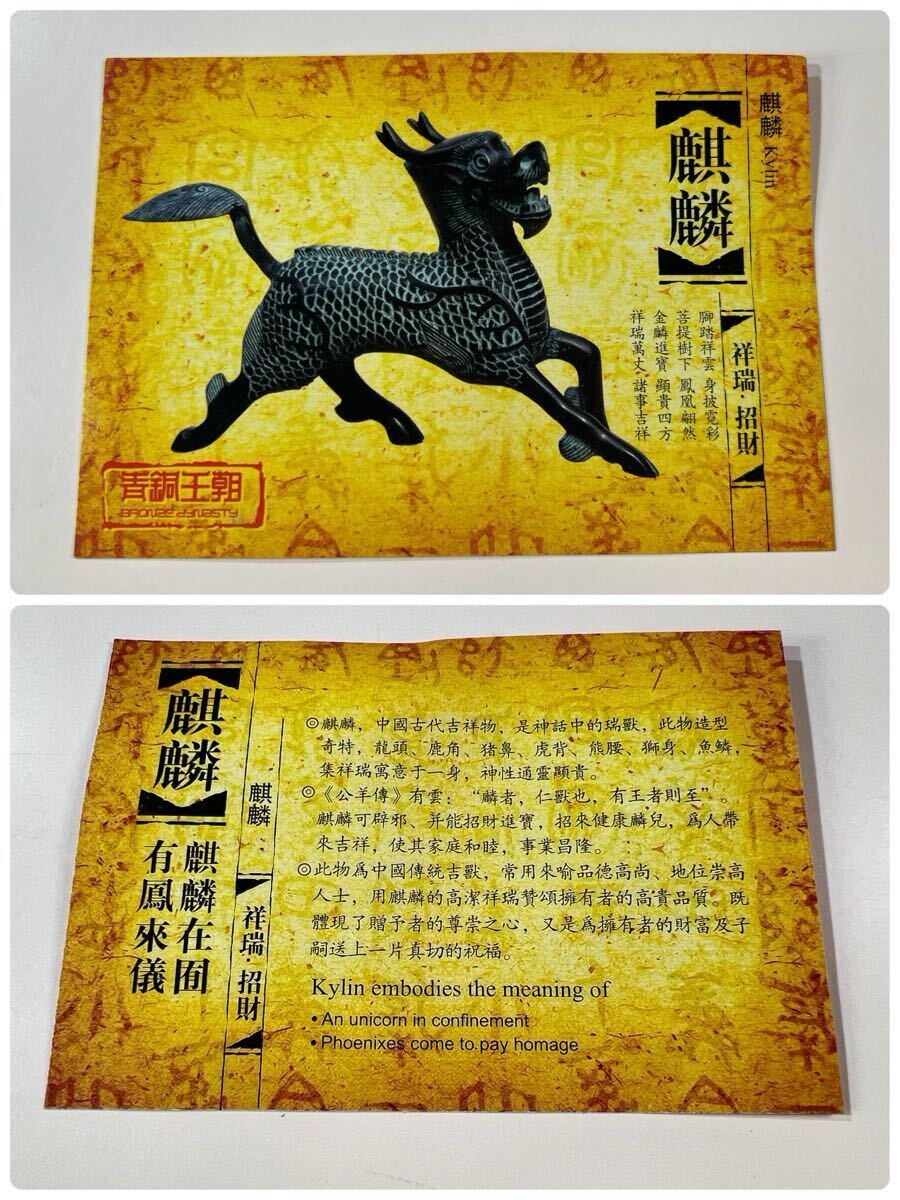 麒麟 Kylin
麒麟
祥瑞·招財
腳踏祥雲 身披霓彩
菩提樹下 鳳凰翩然
金麟進寶 顯貴四方
祥瑞萬丈 諸事吉祥
青銅王朝
BRONZE DYNASTY
麒麟
麒麟在囿
有鳳來儀
麒麟:
祥瑞·招財
◎麒麟,中國古代吉祥物,是神話中的瑞獸,此物造型
奇特,龍頭、鹿角、猪鼻、虎背、熊腰、獅身、魚鱗,
集祥瑞寓意于一身,神性通靈顯貴。
◎《公羊傳》有雲:“麟者,仁獸也,有王者則至”。
麒麟可辟邪、并能招財進寶,招來健康麟兒,爲人帶
來吉祥,使其家庭和睦,事業昌隆。
◎此物爲中國傳統吉獸,常用來喻品德高尚、地位崇高
人士,用麒麟的高潔祥瑞贊頌擁有者的高貴品質。既
體現了贈予者的尊崇之心,又是爲擁有者的財富及子
嗣送上一片真切的祝福。
Kylin embodies the meaning of
•An unicorn in confinement
•Phoenixes come to pay homage